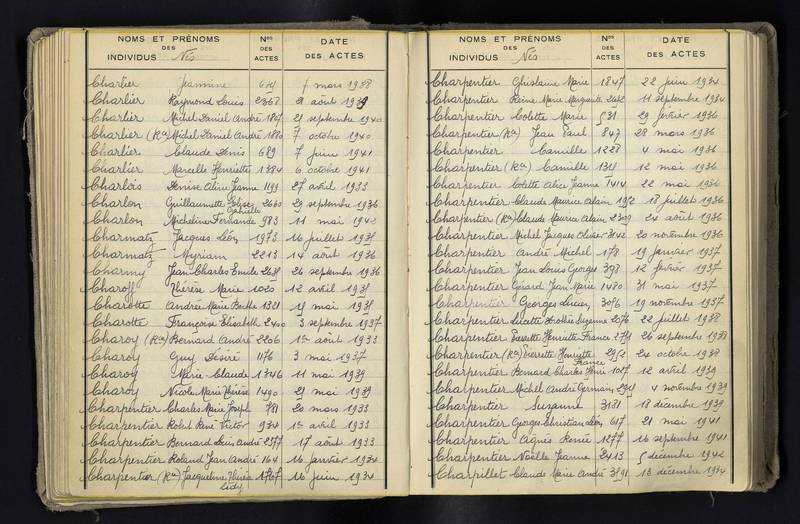 NOMS ET PRÉNOMS DES INDIVIDUS Nés Nos DES ACTES DATE DES ACTES
Charlier Jeannine 1 mars 1938
Charlier Raymond Louis 2368 2 août 1939
Charlier Michel Daniel André 1807 21 septembre 1940
Charlier (Ron) Michel Daniel André 1880 7 octobre 1940
Charlier Claude Denis 689 7 juin 1941
Charlier Marcelle Henriette 1384 6 octobre 1941
Charlois Denise Aline Jeanne 1199 27 avril 1933
Charlon Guillaumette Elise Gabrielle 2660 29 septembre 1936
Charlon Micheline Fernande 983 11 mai 1942
Charmatz Jacques Léon 1973 16 juillet 1935
Charmatz Myriam 2213 14 août 1936
Charmy Jean Charles Emile 26 septembre 1936
Charoff Thérèse Marie 1020 12 avril 1935
Charotte Andrée Marie Berthe 1321 mai 1935
Charotte Françoise Elisabeth 2400 3 septembre 1937
Charoy (Ron) Bernard André 2206 1er août 1933
Charoy Guy Désiré 1176 3 mai 1937
Charoy Marie Claude 1346 11 mai 1939
Charoy Nicole Marie Thérèse 1490 mai 1939
Charpentier Charles Marie Joseph 781 20 mars 1933
Charpentier Robert René Victor 934 1er avril 1933
Charpentier Bernard Louis André 2377 17 août 1933
Charpentier Roland Jean André 164 16 janvier 1934
Charpentier (Ron) Jacqueline Thérèse 1767 16 juin 1934
NOMS ET PRÉNOMS DES INDIVIDUS Nés Nos DES ACTES DATE DES ACTES
Charpentier Ghislaine Marie 1847 22 juin 1934
Charpentier Reine Marie Marguerite 11 septembre 1934
Charpentier Colette Marie 531 29 février 1936
Charpentier (Ron) Jean Paul 847 28 mars 1936
Charpentier Camille 1228 4 mai 1936
Charpentier (Ron) Camille 12 mai 1936
Charpentier Colette Alice Jeanne 1414 22 mai 1936
Charpentier Claude Maurice Alain 1952 18 juillet 1936
Charpentier (Ron) Claude Maurice Alain 2309 24 août 1936
Charpentier Michel Jacques Olivier 3142 20 novembre 1936
Charpentier André Michel 178 19 janvier 1937
Charpentier Jean Louis Georges 398 12 février 1937
Charpentier Gérard Jean Marie 1480 31 mai 1937
Charpentier Georges Lucien 3056 19 novembre 1937
Charpentier Lucette Dorothée Suzanne 2076 22 juillet 1938
Charpentier Pierrette Henriette France 26 septembre 1938
Charpentier (Ron) Pierrette Henriette France 2952 24 octobre 1938
Charpentier Bernard Charles Henri 1057 12 avril 1939
Charpentier Michel André Germain 4 novembre 1939
Charpentier Suzanne 3181 18 décembre 1939
Charpentier Georges Christian Léon 617 21 mai 1941
Charpentier Agnès Renée 1277 16 septembre 1941
Charpentier Noëlle Jeanne 2413 5 décembre 1942
Charpillet Claude Marie André 18 décembre 1934